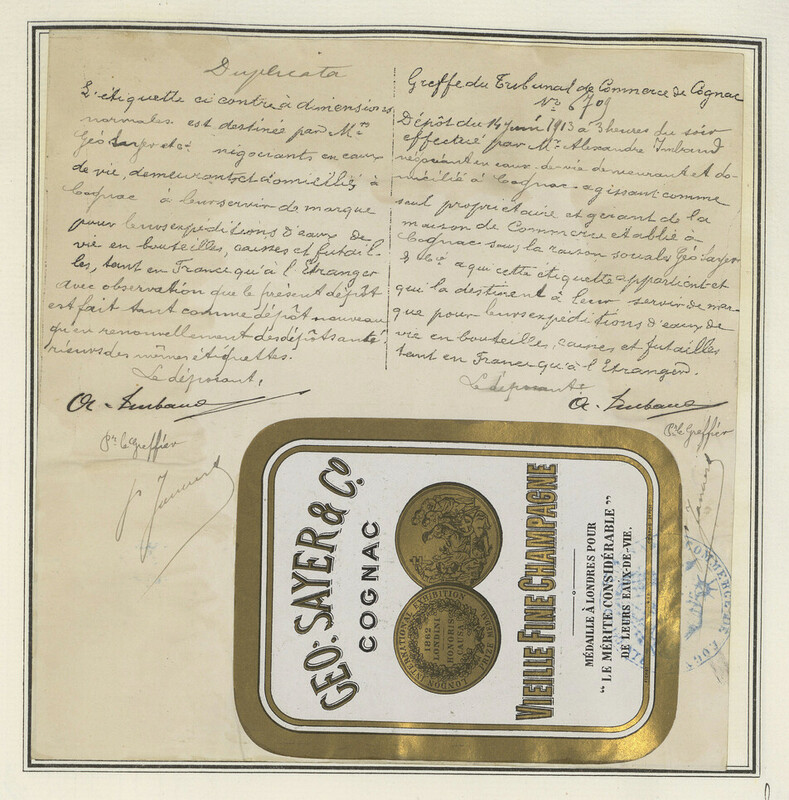 Duplicata
L'étiquette ci contre à dimensions
normales est destinée par Mrs
Géo Sayer et Cie négociants en eaux
de vie, demeurant et domiciliés à
Cognac à leur servir de marque
pour leurs expéditions d'eaux de
vie en bouteilles, caisses et futail-
les, tant en France qu'à l'Etranger
avec observation que le présent dépôt
est fait tant comme dépôt nouveau
qu'en renouvellement des dépôts anté-
rieurs des mêmes étiquettes.
Le déposant,
A. Imbaud
Pr le Greffier
Greffe du Tribunal de Commerce de Cognac
No 6709
Dépôt du 14 juin 1913 à 3 heures du soir
effectué par Mr Alexandre Imbaud
négociant en eaux-de-vie demeurant et do-
micilié à Cognac agissant comme
seul propriétaire et gérant de la
maison de Commerce établie à
Cognac sous la raison sociale Géo Sayer
& Cie a qui cette étiquette appartient et
qui la destinent à leur servir de mar-
que pour leurs expéditions d'eaux de
vie en bouteilles, caisses et futailles
tant en France qu'à l'Etranger.
Le déposant
A. Imbaud
Pr le Greffier
GEO. SAYER & Co
COGNAC
LONDON INTERNATIONAL EXHIBITION PRIZE MEDAL
1862
LONDINI
HONORIS
CAUSA
VIEILLE FINE CHAMPAGNE
MÉDAILLE À LONDRES POUR
"LE MÉRITE CONSIDÉRABLE"
DE LEURS EAUX-DE-VIE.
COMMERCE DE COGNAC